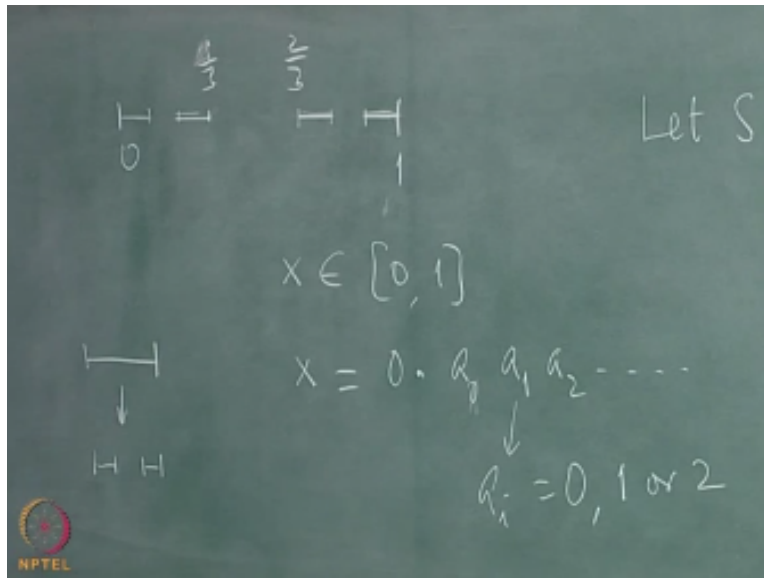 1/3 2/3
0 1
Let S
x ∈ [0, 1]
x = 0. a₀ a₁ a₂ -----
aᵢ = 0, 1 or 2
NPTEL